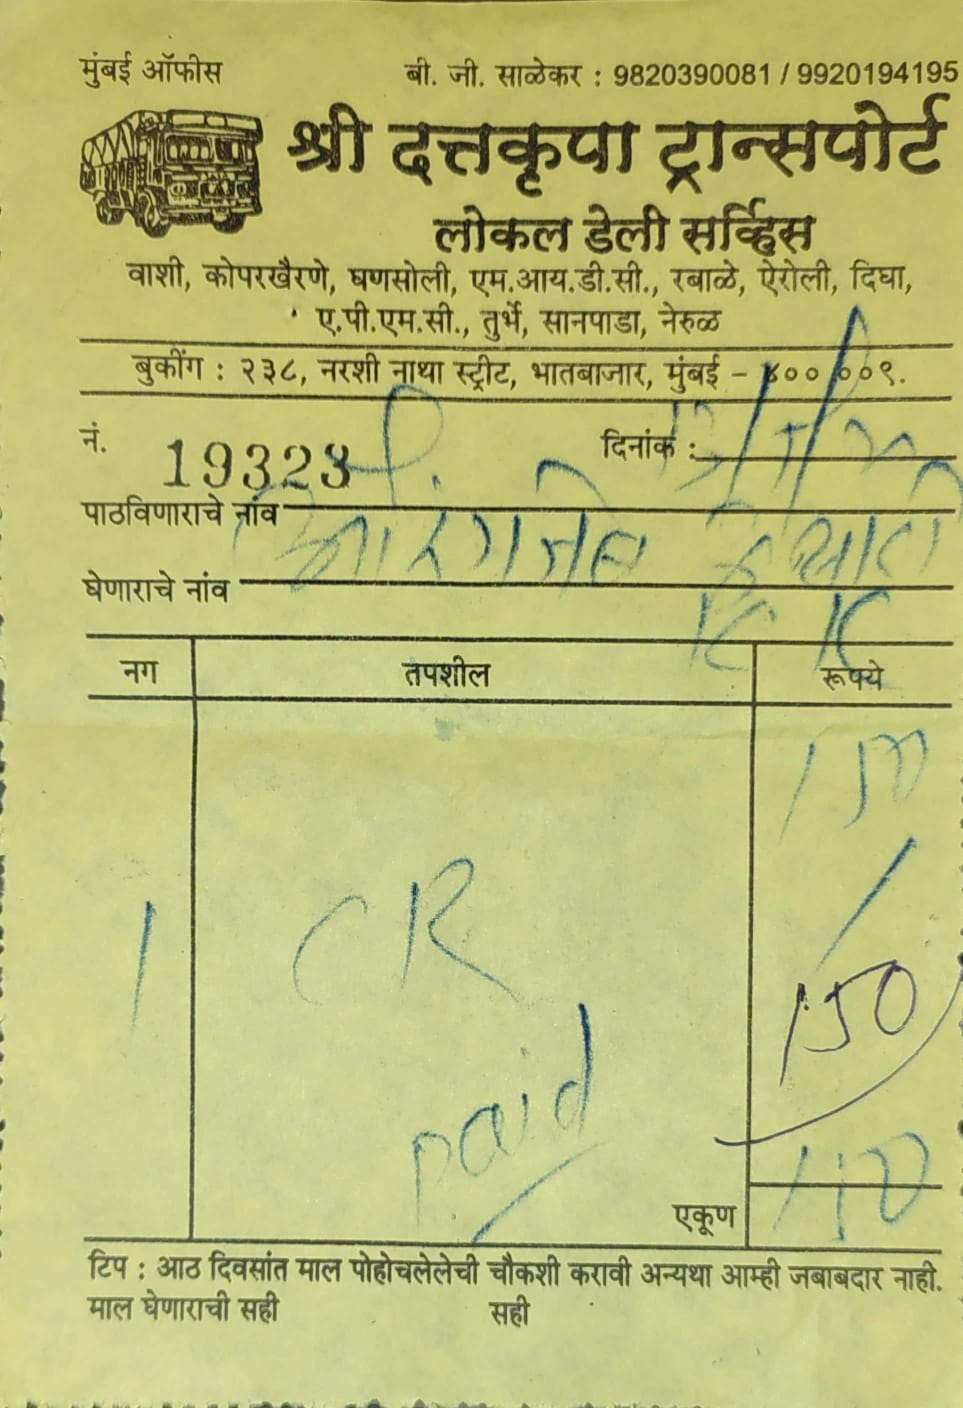 मुंबई ऑफीस
बी. जी. साळेकर : 9820390081 / 9920194195
श्री दत्तकृपा ट्रान्सपोर्ट
लोकल डेली सर्व्हिस
वाशी, कोपरखैरणे, घणसोली, एम.आय.डी.सी., रबाळे, ऐरोली, दिघा,
ए.पी.एम.सी., तुर्भे, सानपाडा, नेरुळ
बुकींग : २३८, नरशी नाथा स्ट्रीट, भातबाजार, मुंबई - ४०० ००९.
नं. 19323 दिनांक :
पाठविणाराचे नांव
घेणाराचे नांव
नग तपशील रूपये
150
1 CR
150
paid
एकूण
टिप : आठ दिवसांत माल पोहोचलेलेची चौकशी करावी अन्यथा आम्ही जबाबदार नाही.
माल घेणाराची सही सही